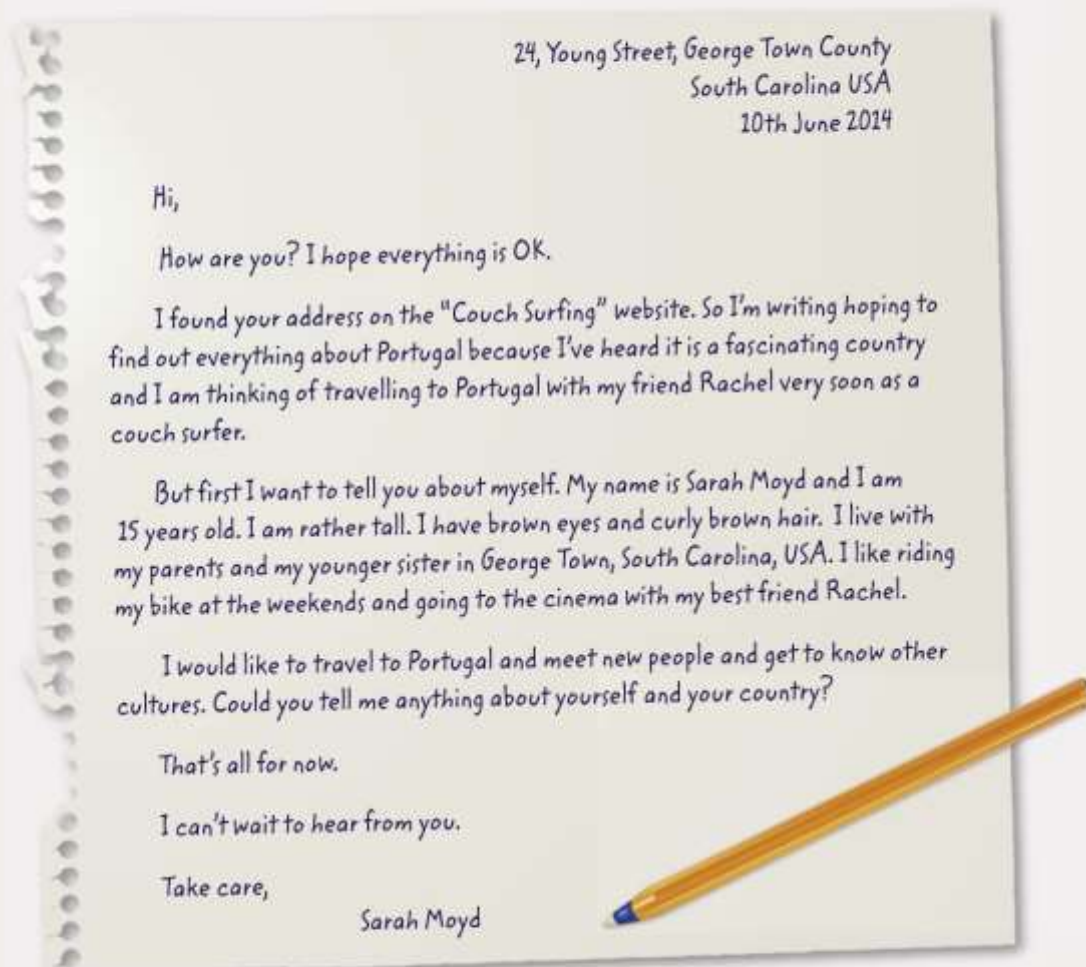 24, Young Street, George Town County
South Carolina USA
10th June 2014
Hi,
How are you? I hope everything is OK.
I found your address on the "Couch Surfing" website. So I'm writing hoping to
find out everything about Portugal because I've heard it is a fascinating country
and I am thinking of travelling to Portugal with my friend Rachel very soon as a
couch surfer.
But first I want to tell you about myself. My name is Sarah Moyd and I am
15 years old. I am rather tall. I have brown eyes and curly brown hair. I live with
my parents and my younger sister in George Town, South Carolina, USA. I like riding
my bike at the weekends and going to the cinema with my best friend Rachel.
I would like to travel to Portugal and meet new people and get to know other
cultures. Could you tell me anything about yourself and your country?
That's all for now.
I can't wait to hear from you.
Take care,
Sarah Moyd